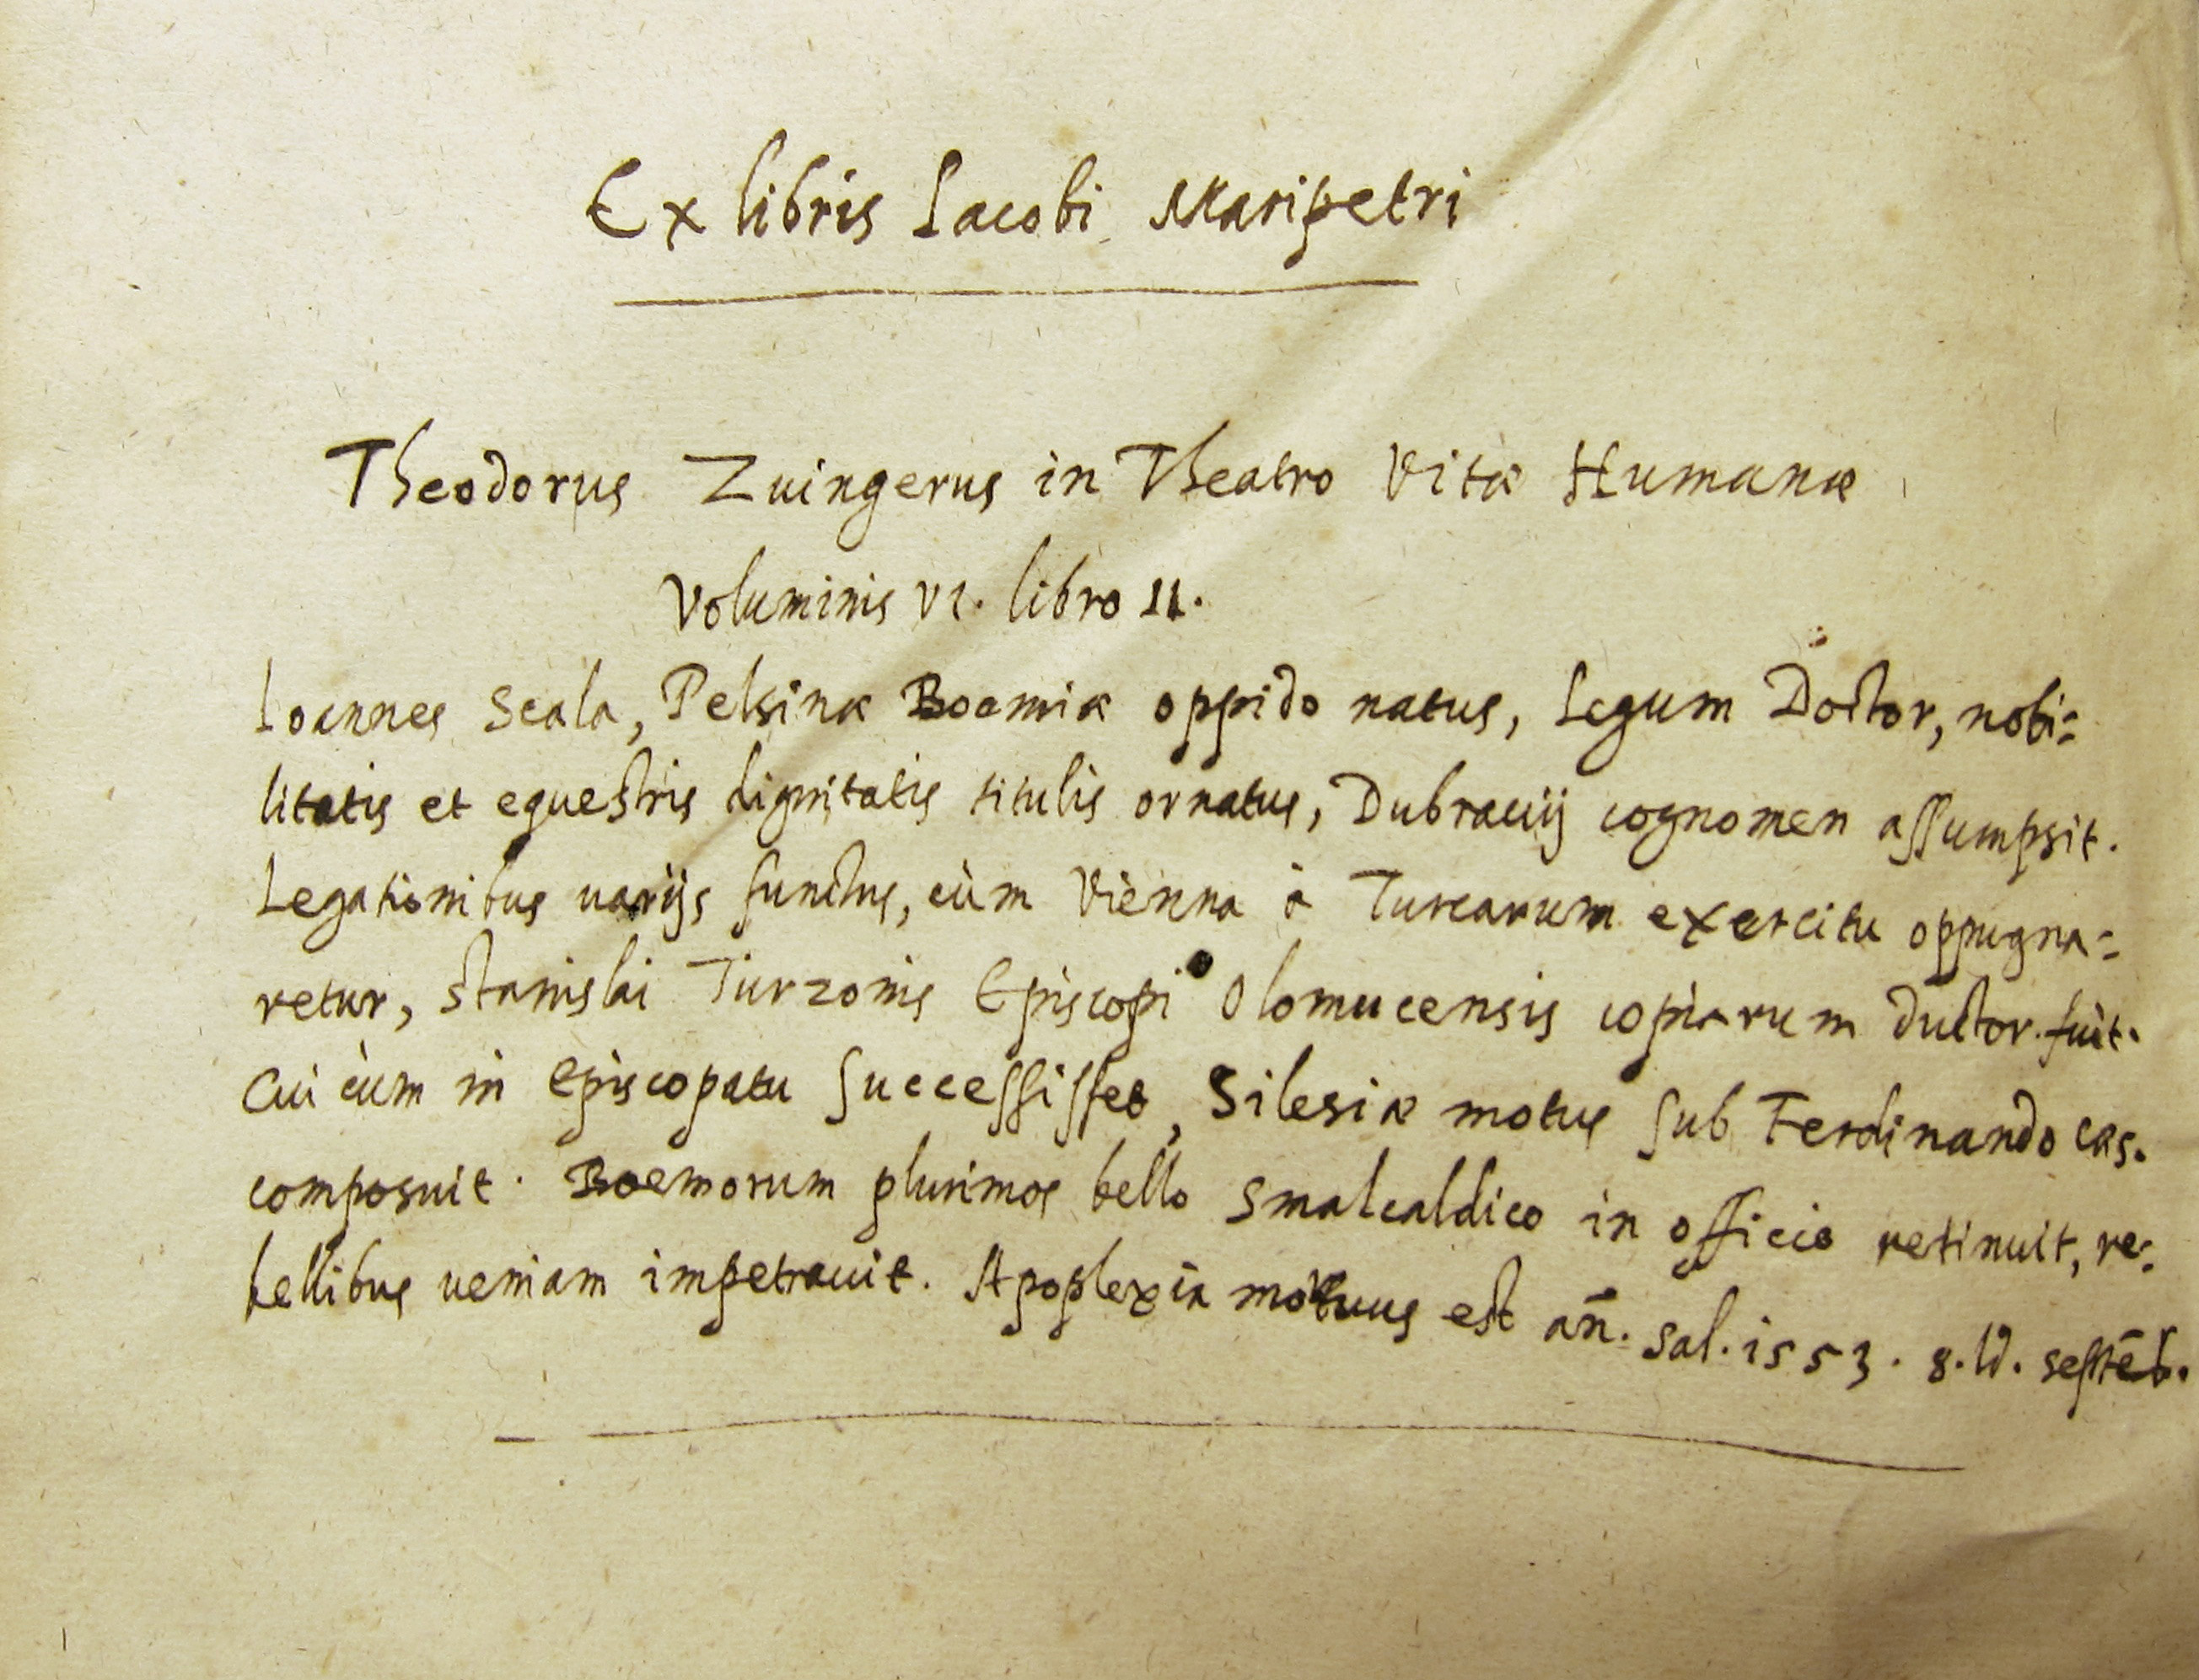 Ex libris Iacobi Maripetri
Theodorus Zuingerus in Theatro Vitæ Humanæ
Voluminis VI. libro II.
Ioannes Scala, Pelsinæ Boemiæ oppido natus, Legum Doctor, nobi=
litatis et equestris dignitatis titulis ornatus, Dubrauij cognomen assumpsit.
Legationibus uarijs functus, cùm Vienna à Turcarum exercitu oppugna=
retur, Stanislai Turzonis Episcopi Olomucensis copiarum ductor fuit.
Cui cùm in Episcopatu successisset, Silesiæ motus sub Ferdinando Cæs.
composuit. Boemorum plurimos bello Smalcaldico in officio retinuit, re=
bellibus ueniam impetrauit. Apoplexia mortuus est an̄. Sal. 1553. 8. Id. Septēb.